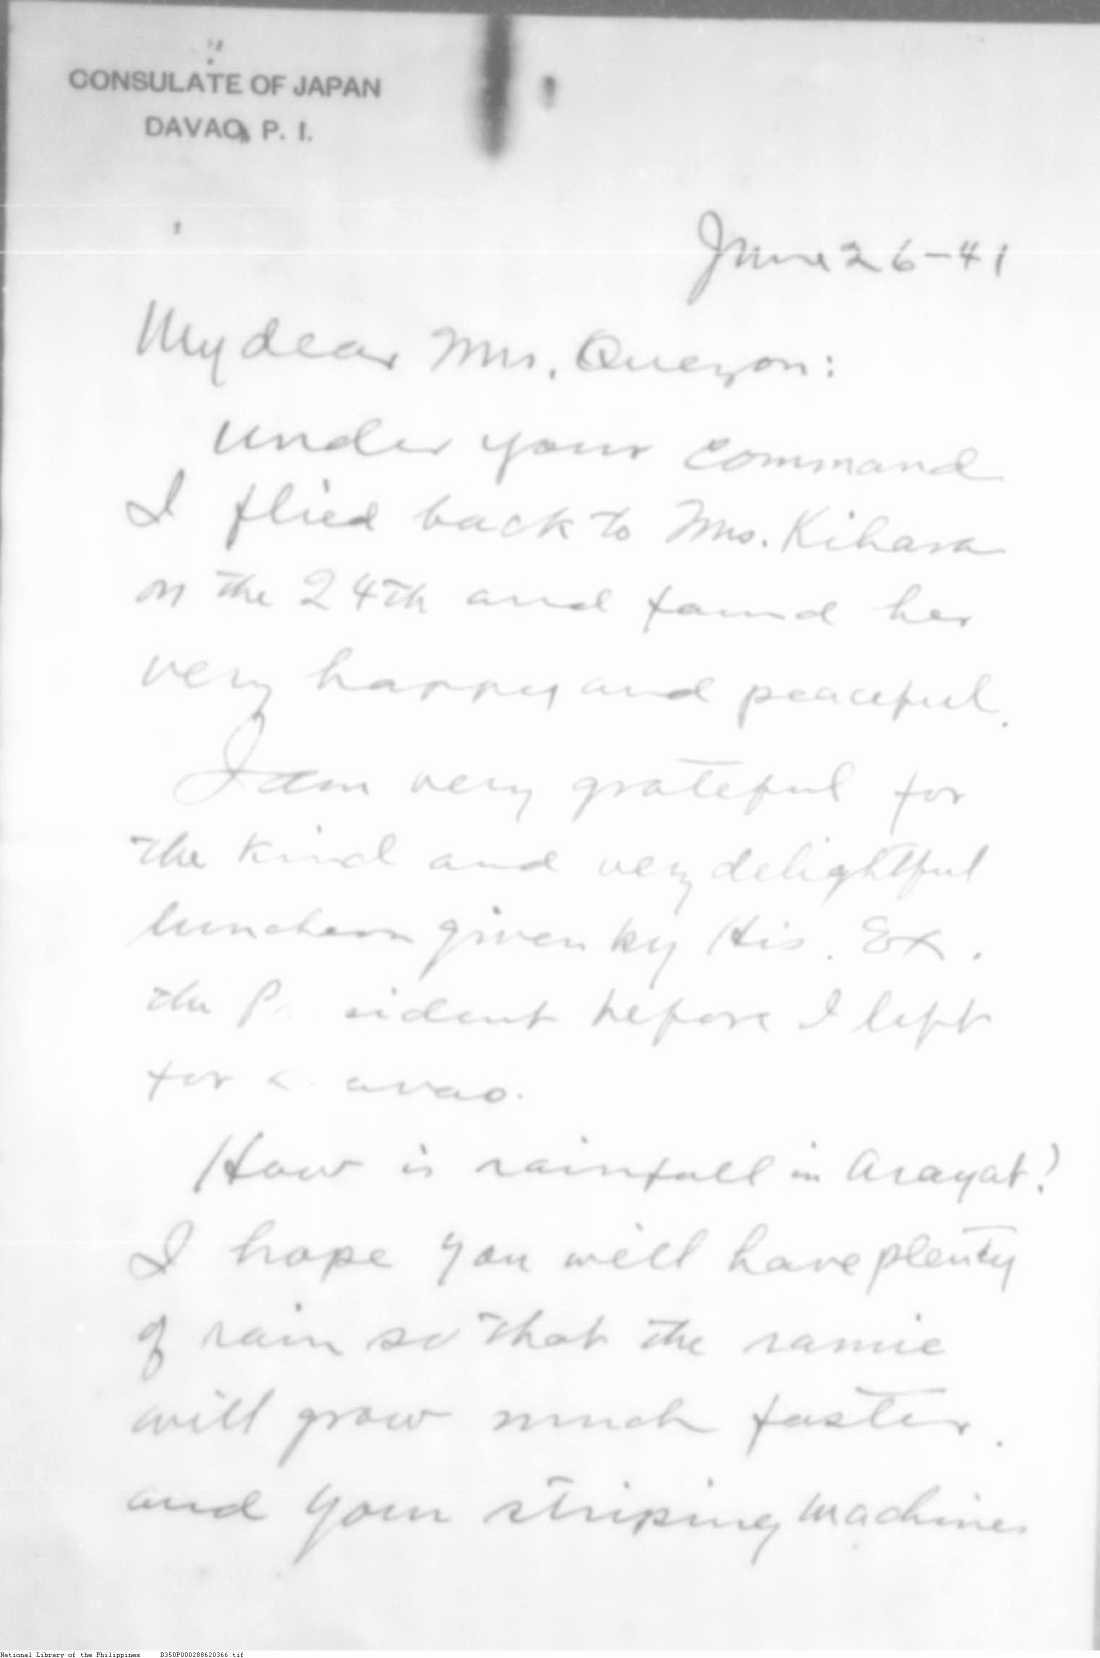 CONSULATE OF JAPAN
DAVAO, P. I.
June 26-41
My dear Mrs. Quezon:
under your command
I flied back to Mrs. Kihara
on the 24th and found her
very happy and peaceful.
I am very grateful for
the kind and very delightful
luncheon given by His. Ex.
the P sident before I left
for avao.
How is rainfall in Arayat?
I hope you will have plenty
of rain so that the ramie
will grow much faster.
and your striping machines
National Library of the Philippines D350P000288620366.tif